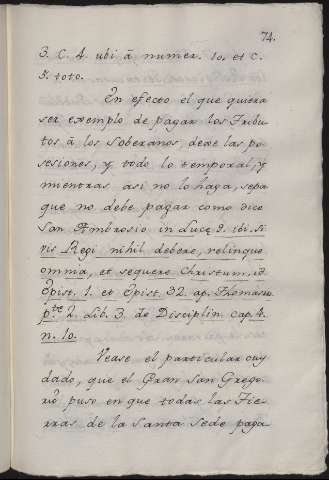 74.
3. C. 4. ubi â numer. 10. et c.
5. toto.
En efecto el que quiera
ser exemplo de pagar los Tribu
tos â los Soberanos, dexe las po
sesiones, y todo lo temporal, y
mientras asi no lo haga, sepa
que no debe pagar como dice
San Ambrosio in Luc. 9. ibi. Si
vis Regi nihil debere, relinque
omnia, et sequere Christum. id.
Epist. 1. et Epist. 32. ap. Thomasin.
p.te 2. Lib. 3. de Disciplin. cap. 4.
n. 10.
Vease el particular cuy
dado, que el Gran San Grego
rio puso en que todas las Tie
rras de la Santa Sede paga